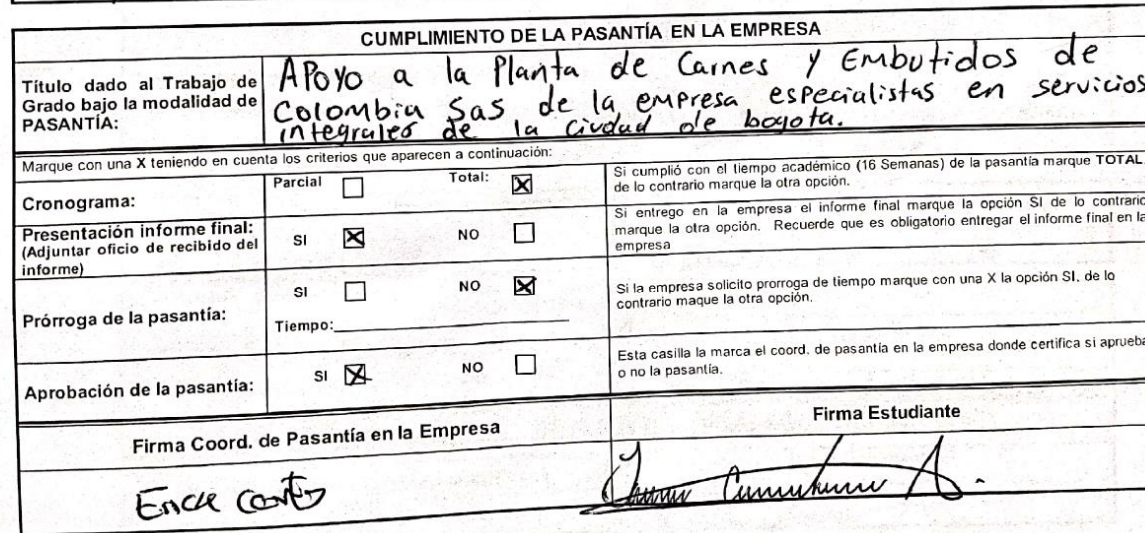 CUMPLIMIENTO DE LA PASANTÍA EN LA EMPRESA
Título dado al Trabajo de
Grado bajo la modalidad de
PASANTÍA:
APOYO a la Planta de Carnes y Embutidos de
Colombia Sas de la empresa especialistas en servicios
integrales de la ciudad de bogota.
Marque con una X teniendo en cuenta los criterios que aparecen a continuación:
Cronograma:
Parcial ☐ Total: ☒
Si cumplió con el tiempo académico (16 Semanas) de la pasantía marque TOTAL,
de lo contrario marque la otra opción.
Presentación informe final:
(Adjuntar oficio de recibido del
informe)
SI ☒ NO ☐
Si entrego en la empresa el informe final marque la opción SI de lo contrario
marque la otra opción. Recuerde que es obligatorio entregar el informe final en la
empresa
Prórroga de la pasantía:
SI ☐ NO ☒
Tiempo:
Si la empresa solicito prorroga de tiempo marque con una X la opción SI, de lo
contrario maque la otra opción.
Aprobación de la pasantía:
SI ☒ NO ☐
Esta casilla la marca el coord. de pasantía en la empresa donde certifica si aprueba
o no la pasantía.
Firma Coord. de Pasantía en la Empresa
Firma Estudiante